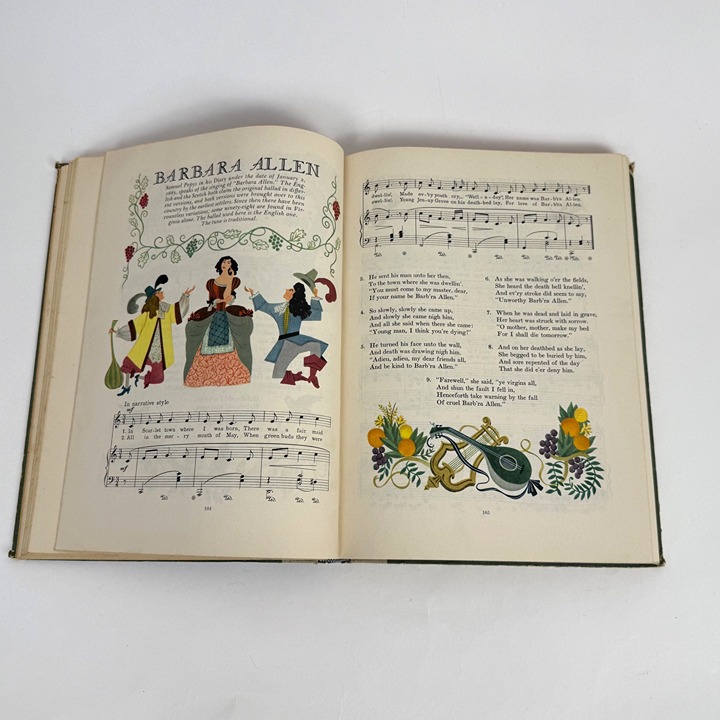 BARBARA ALLEN
Samuel Pepys in his Diary under the date of January 2,
1665, speaks of the singing of "Barbara Allen." The Eng-
lish and the Scotch both claim the original ballad in differ-
ent versions, and both versions were brought over to this
country by the earliest settlers. Since then there have been
countless variations; some ninety-eight are found in Vir-
ginia alone. The ballad used here is the English one.
The tune is traditional.
In narrative style
mf
1. In Scar-let town where I was born, There was a fair maid
2. All in the mer - ry month of May, When green buds they were
mf
104
dwel-lin', Made ev-'ry youth cry, "Well - a - day", Her name was Bar-b'ra Al-len.
swel-lin', Young Jem-my Grove on his death-bed lay, For love of Bar-b'ra Al-len.
3. He sent his man unto her then,
To the town where she was dwellin'.
"You must come to my master, dear,
If your name be Barb'ra Allen."
4. So slowly, slowly she came up,
And slowly she came nigh him,
And all she said when there she came:
"Young man, I think you're dying!"
5. He turned his face unto the wall,
And death was drawing nigh him.
"Adieu, adieu, my dear friends all,
And be kind to Barb'ra Allen."
6. As she was walking o'er the fields,
She heard the death bell knellin',
And ev'ry stroke did seem to say,
"Unworthy Barb'ra Allen."
7. When he was dead and laid in grave,
Her heart was struck with sorrow.
"O mother, mother, make my bed
For I shall die tomorrow."
8. And on her deathbed as she lay,
She begged to be buried by him,
And sore repented of the day
That she did e'er deny him.
9. "Farewell," she said, "ye virgins all,
And shun the fault I fell in,
Henceforth take warning by the fall
Of cruel Barb'ra Allen."
105